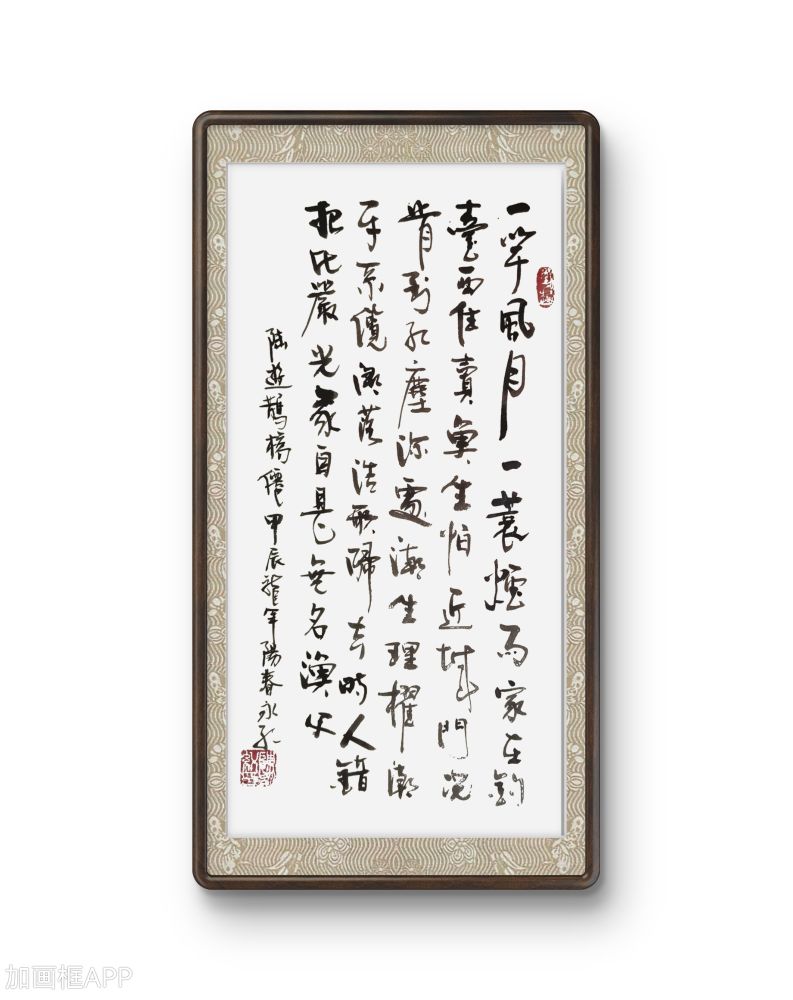 一竿風月一蓑煙雨家在釣
臺西住賣魚生怕近城門況
肯到紅塵深處潮生理櫂潮
平系纜潮落浩歌歸去時人錯
把比嚴光我自是無名漁父
陸遊鵲橋僊甲辰龍年陽春永
加画框APP